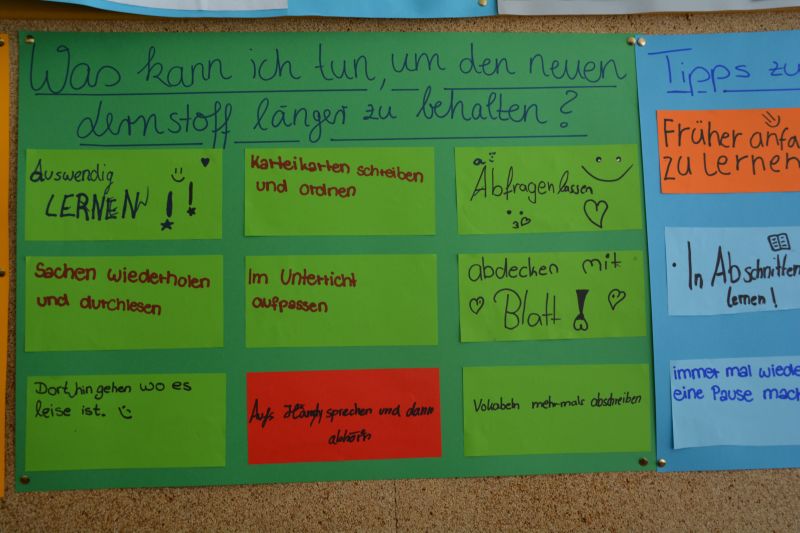 Was kann ich tun, um den neuen
Lernstoff länger zu behalten?
Auswendig
LERNEN!!
Karteikarten schreiben
und ordnen
Abfragen lassen
Sachen wiederholen
und durchlesen
Im Unterricht
aufpassen
abdecken mit
Blatt!
Dort hin gehen wo es
leise ist.
Aufs Handy sprechen und dann
abhör'n
Vokabeln mehrmals abschreiben
Tipps zu
Früher anfa
zu Lernen
In Abschnitten
lernen!
immer mal wiede
eine Pause mach